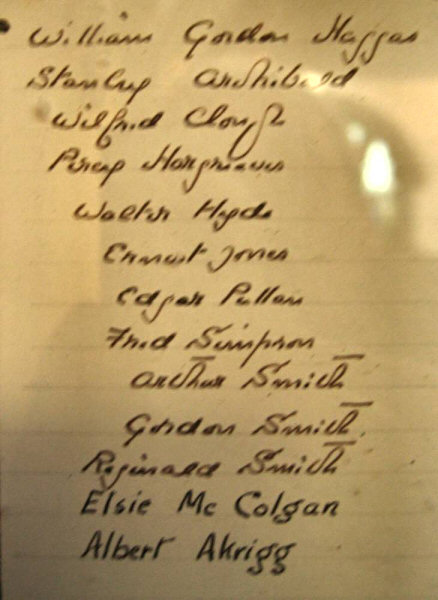 William Gordon Haggas
Stanley Archibald
Wilfrid Clough
Percy Hargreaves
Walter Hyde
Ernest Jones
Edgar Pullan
Fred Simpson
Arthur Smith
Gordon Smith.
Reginald Smith
Elsie Mc Colgan
Albert Akrigg